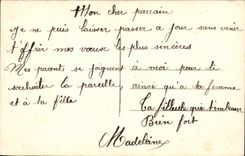 Mon cher parrain
Je ne puis laisser passer ce jour sans venir
t'offrir mes vœux les plus sincères
Mes parents se joignent à moi pour te
souhaiter la pareille, ainsi qu'à ta femme
et à ta fille
Ta filleule qui t'embrasse
Bien fort
Madeleine